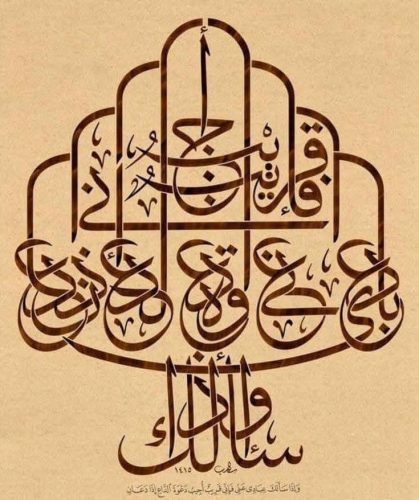 وإذا سألك عبادي عني فإني قريب أجيب دعوة الداع إذا دعان
١٤١٥
وَإِذَا سَأَلَكَ عِبَادِي عَنِّي فَإِنِّي قَرِيبٌ أُجِيبُ دَعْوَةَ الدَّاعِ إِذَا دَعَانِ